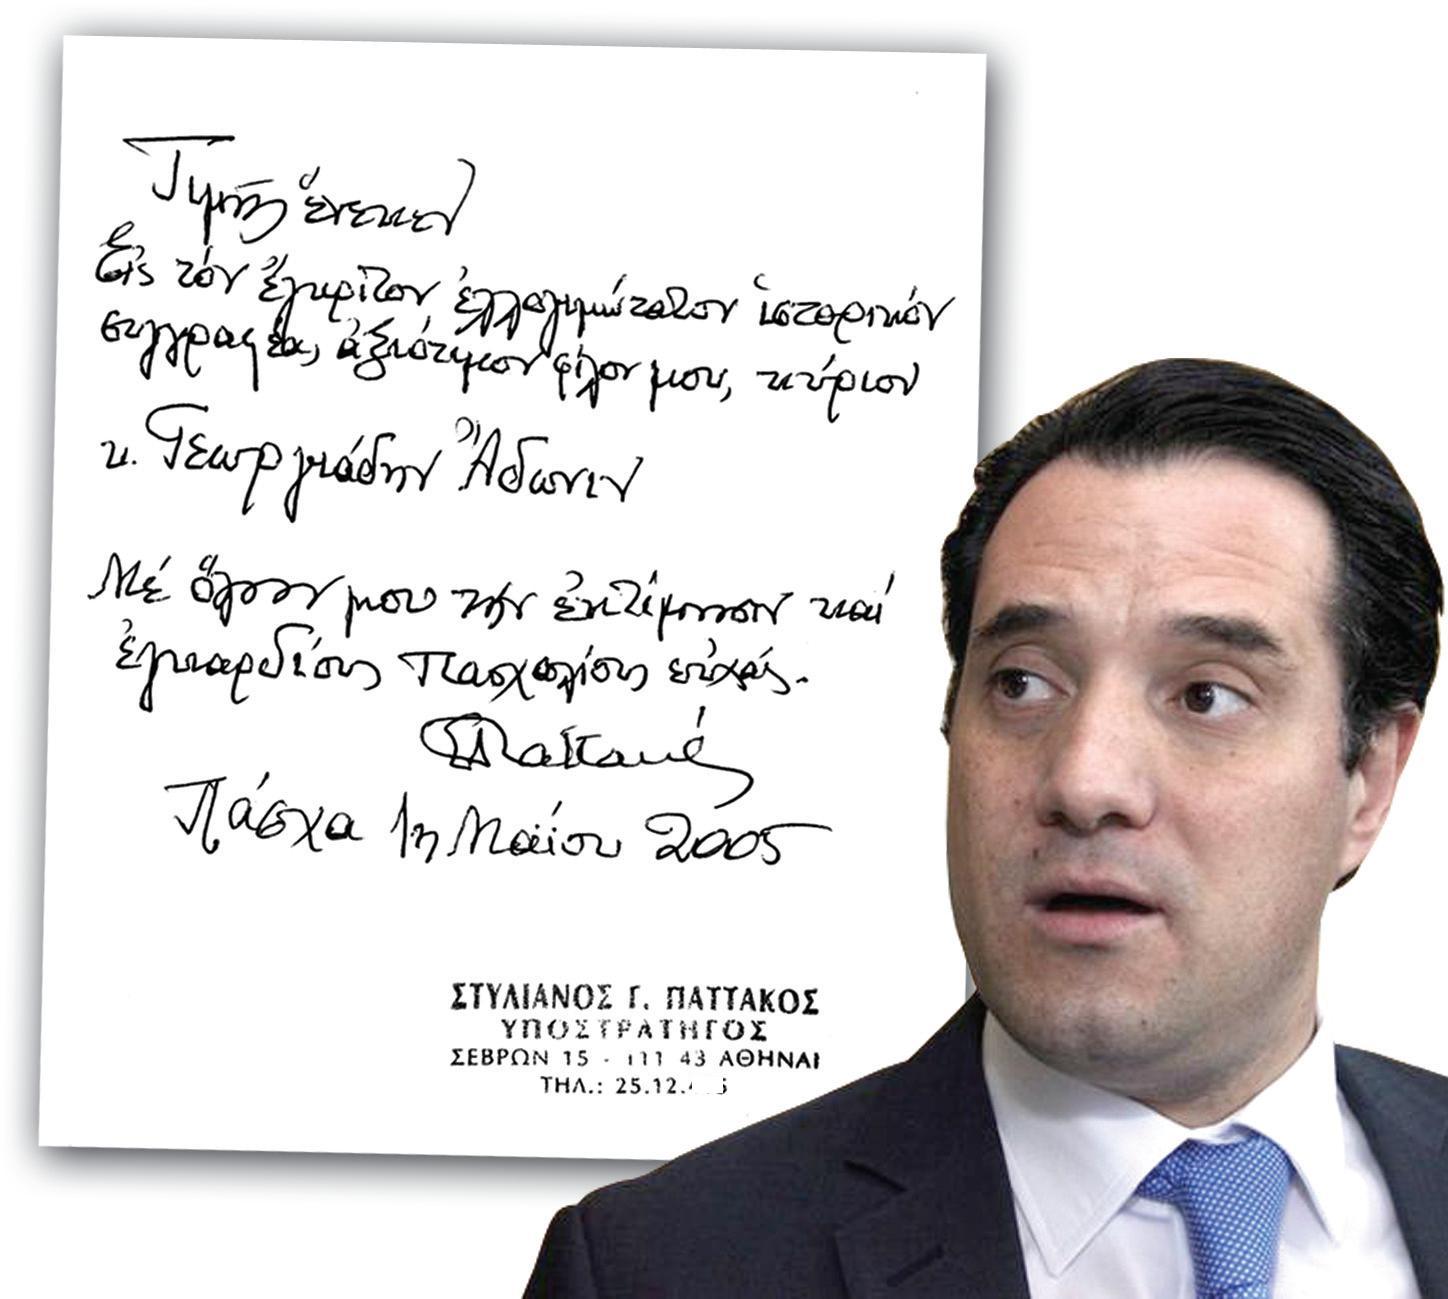 Τιμῆς ἕνεκεν
Εἰς τόν ἔγκριτον ἐλλογιμώτατον ἱστορικόν
συγγραφέα, ἀξιότιμον φίλον μου, κύριον
κ. Γεωργιάδην Ἄδωνιν
Μέ ὅλην μου τήν ἐκτίμησιν καί
ἐγκαρδίους πασχαλίους εὐχάς.
Πάσχα 1η Μαΐου 2005
ΣΤΥΛΙΑΝΟΣ Γ. ΠΑΤΤΑΚΟΣ
ΥΠΟΣΤΡΑΤΗΓΟΣ
ΣΕΒΡΩΝ 15 - 111 43 ΑΘΗΝΑΙ
ΤΗΛ.: 25.12.